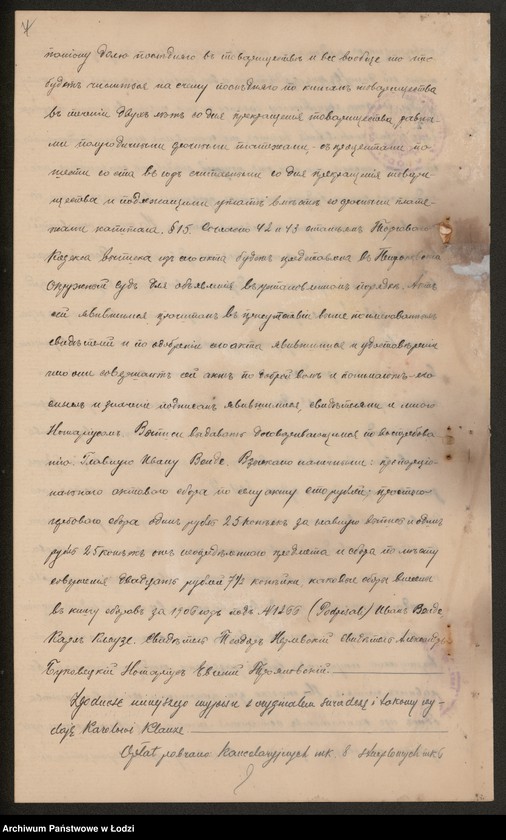 4
потому долю последняго въ товариществѣ и все вообще то что
будетъ числиться на счету последняго по книгамъ товарищества
въ теченіи двухъ лѣтъ со дня прекращенія товарищества равны-
ми полугодичными срочными платежами съ процентами по
шести со ста въ годъ считаемыми со дня прекращенія товари-
щества и подлежащими уплатѣ вмѣстѣ со срочными плате-
жами капитала. §15. Согласно 42 и 43 статьямъ Торговаго
Кодекса выписка изъ сего акта будетъ представлена въ Петроковскій
Окружной судъ для объявленія въ установленномъ порядкѣ. Актъ
сей явившимся прочитанъ въ присутствіи выше поименованныхъ
свидѣтелей и по одобреніи сего акта явившимися и удостовѣреніи
что они совершаютъ сей актъ по доброй волѣ и понимаютъ его
смыслъ и значеніе подписанъ явившимися, свидѣтелями и мною
Нотаріусомъ. Выписи выдавать договаривающимся по востребова-
нію. Главную Ивану Венде. Взыскано наличными: пропорціо-
нальнаго актоваго сбора по сему акту сто рублей; простого
гербоваго сбора одинъ рубль 25 копѣекъ за главную выпись и одинъ
рубль 25 копѣекъ отъ неопредѣленнаго предмета и сбора по мѣсту
совершенія двадцать рублей 77½ копѣйки, каковые сборы внесены
въ книгу сборовъ за 1906 годъ подъ № 1255 (Podpisali) Иванъ Венде
Карлъ Клаузе. Свидѣтель Теодоръ свидѣтель Александръ
Буковецкій Нотаріусъ Евгеній Трояновскій.
Zgodność niniejszego wypisu z oryginałem świadczę i takowy wy-
daję Karolowi Klauze
Opłat pobrano Kancelaryjnych mk. 8 stemplowych mk 6
Archiwum Państwowe w Łodzi